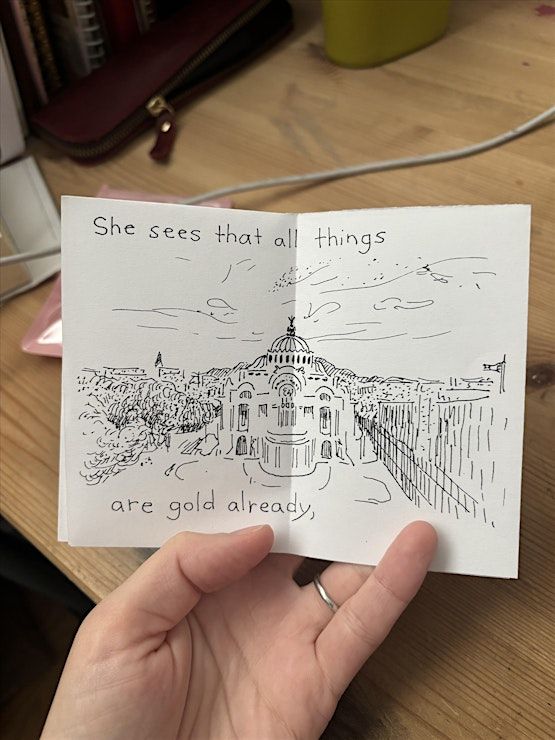 She sees that all things
are gold already,